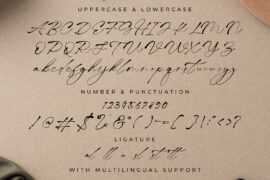 UPPERCASE & LOWERCASE
ABCDEFGHIJKLMN
OPQRSTUVWXYZ
abcdefghijklmnopqrstuvwxyz
NUMBER & PUNCTUATION
1234567890
LIGATURE
WITH MULTILINGUAL SUPPORT